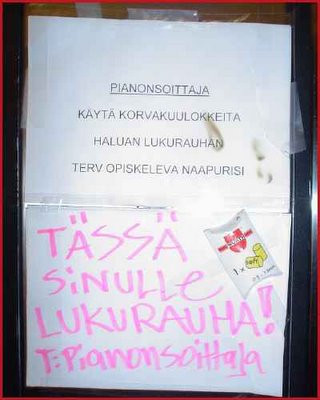 PIANONSOITTAJA
KÄYTÄ KORVAKUULOKKEITA
HALUAN LUKURAUHAN
TERV OPISKELEVA NAAPURISI
TÄSSÄ
SINULLE
LUKURAUHA!
T: Pianonsoittaja
1 x